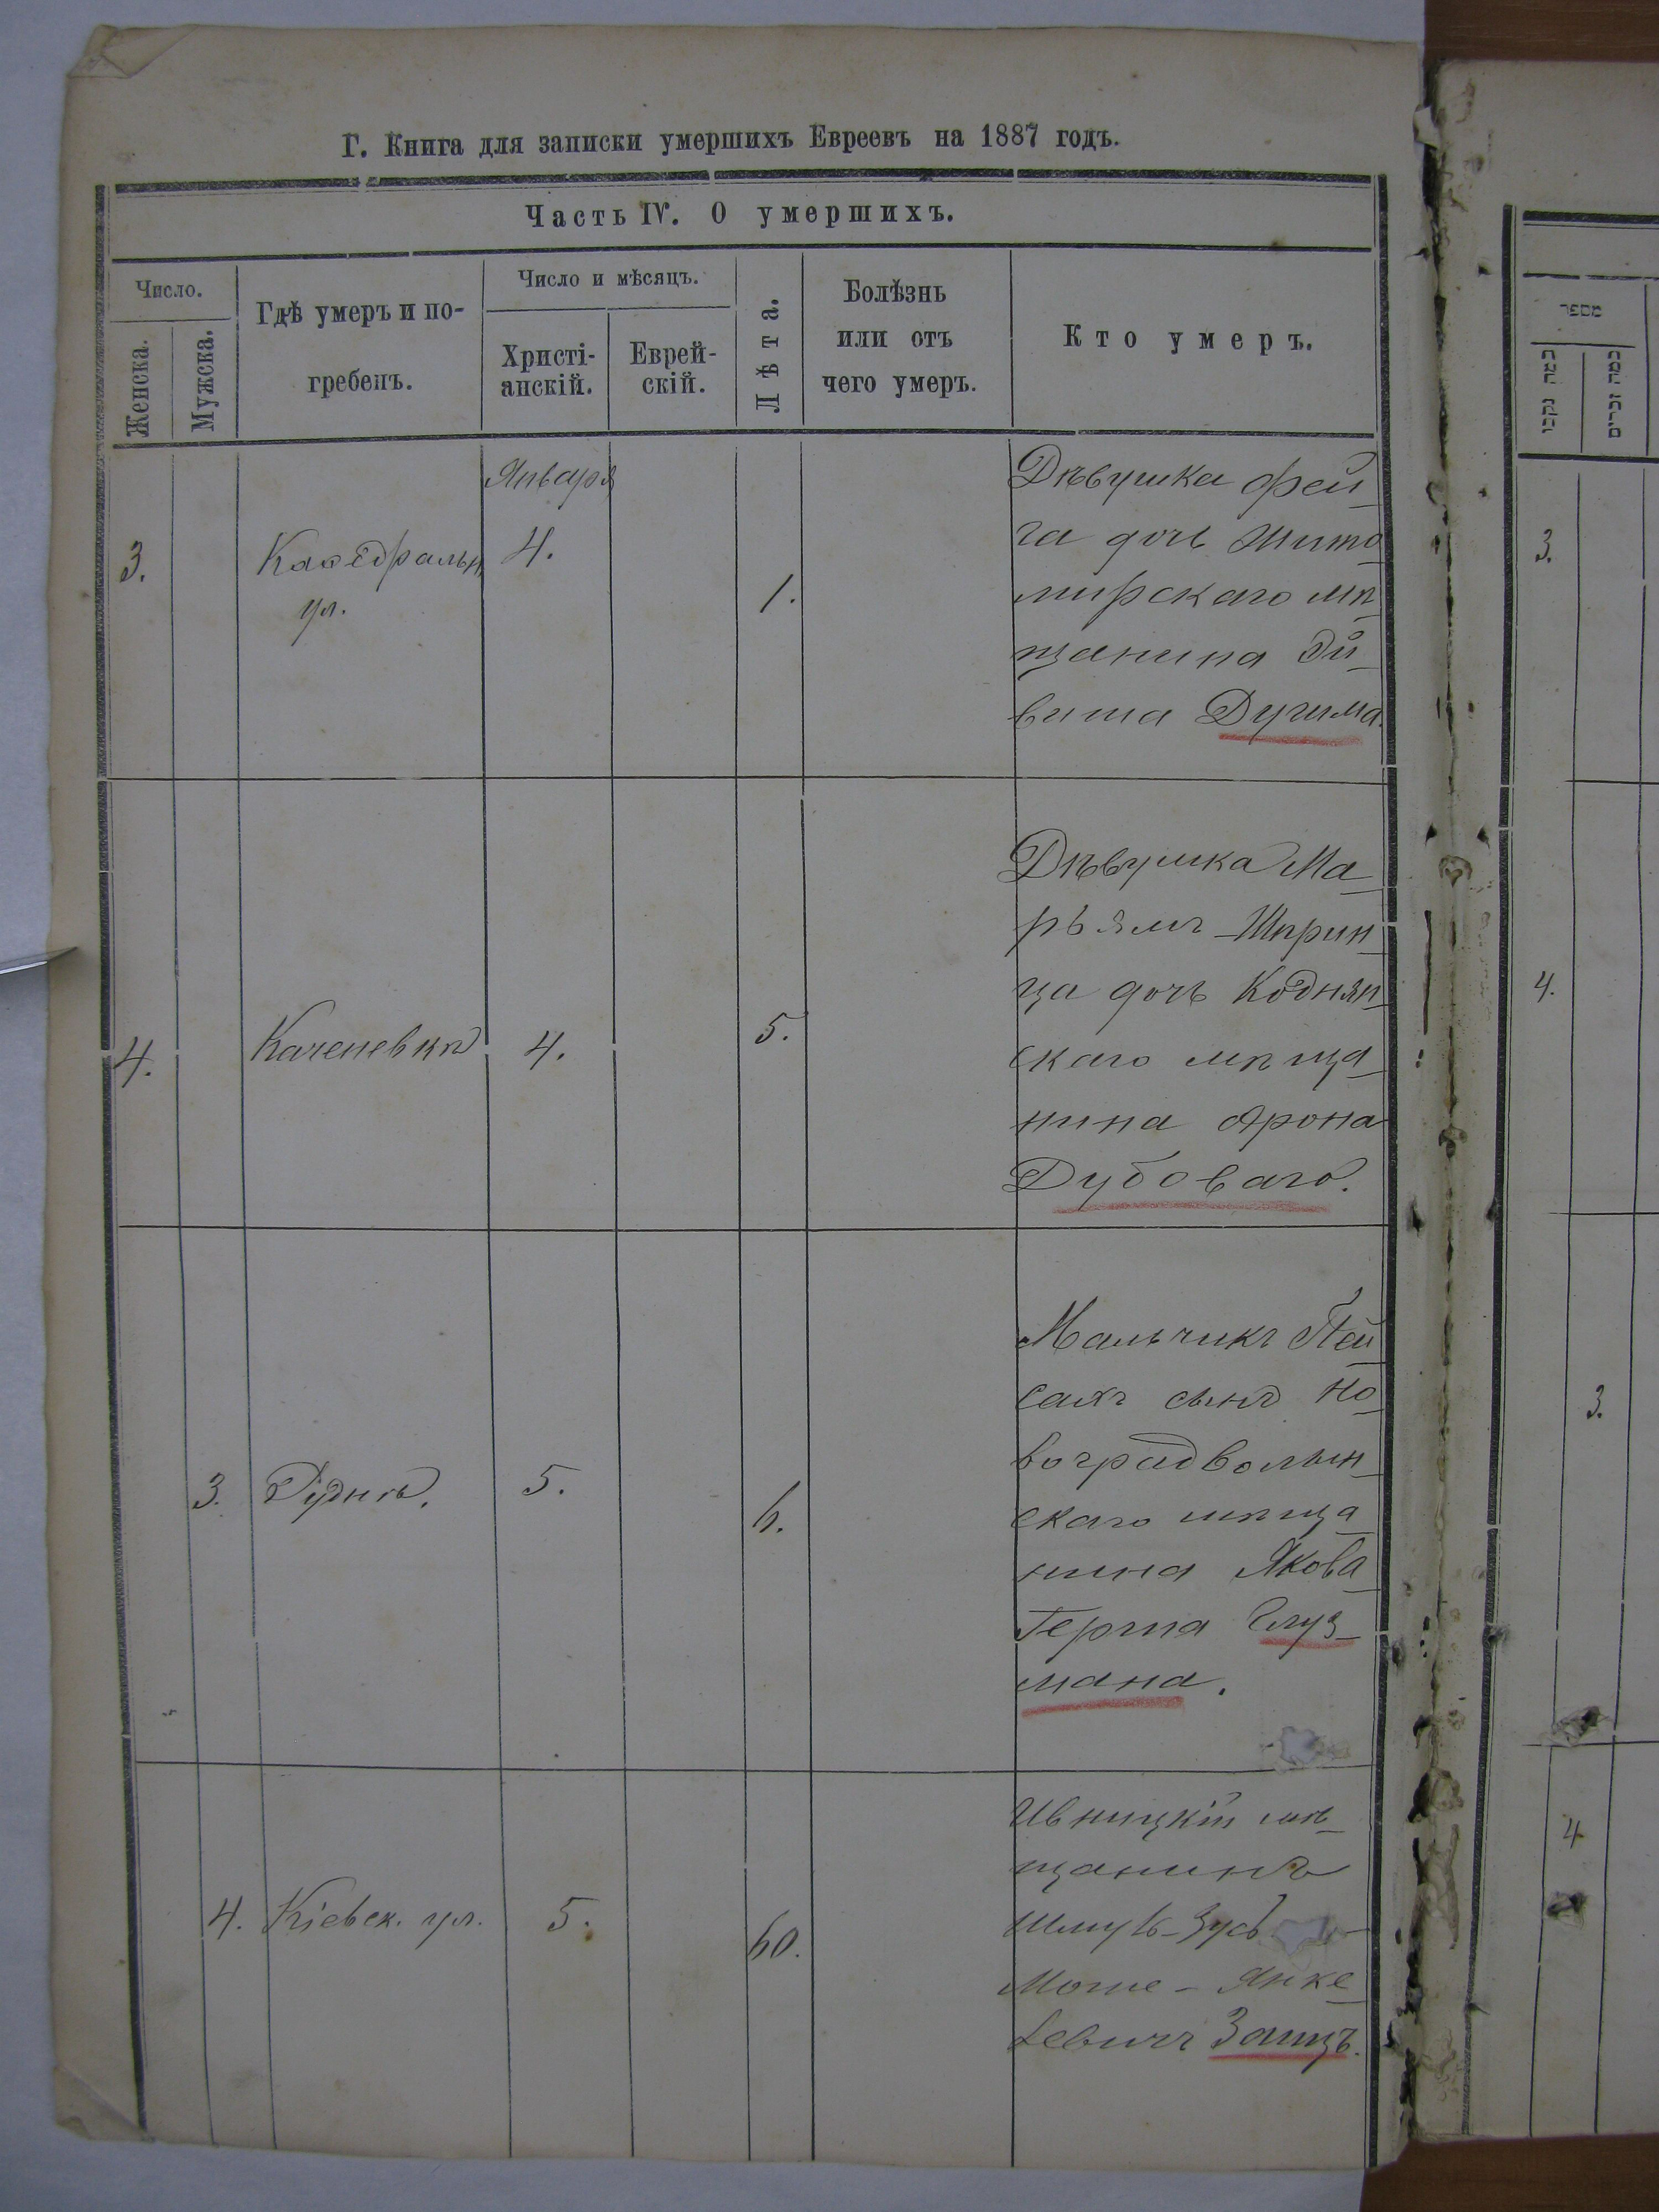 Г. Книга для записки умершихъ Евреевъ на 1887 годъ.
Часть IV. О умершихъ.
Число.
Женска.
Мужска.
Гдѣ умеръ и по-
гребенъ.
Число и мѣсяцъ.
Христі-
анскій.
Еврей-
скій.
Лѣта.
Болѣзнь
или отъ
чего умеръ.
Кто умеръ.
3.
Каѳедральн.
ул.
Января
4.
1.
Дѣвушка Фей-
га дочь Жито-
мирскаго мѣ-
щанина
Дугима.
4.
Каченевкѣ
4.
5.
Дѣвушка Ма-
рьямъ-Шприн-
ца дочь Коднян-
скаго мѣща-
нина Арона
Дубоваго.
3.
Руднѣ.
5.
6.
Мальчикъ Пей-
сахъ сынъ Но-
воградволын-
скаго мѣща-
нина Якова-
Герша Глуз-
мана.
4.
Кіевск. ул.
5.
60.
Ивницкій мѣ-
щанинъ
Шмуль-Зусь
Моше-Янке-
левичъ Заицъ.
מספר
כמה נקבו
כמה זכרים
3.
4.
3.
4